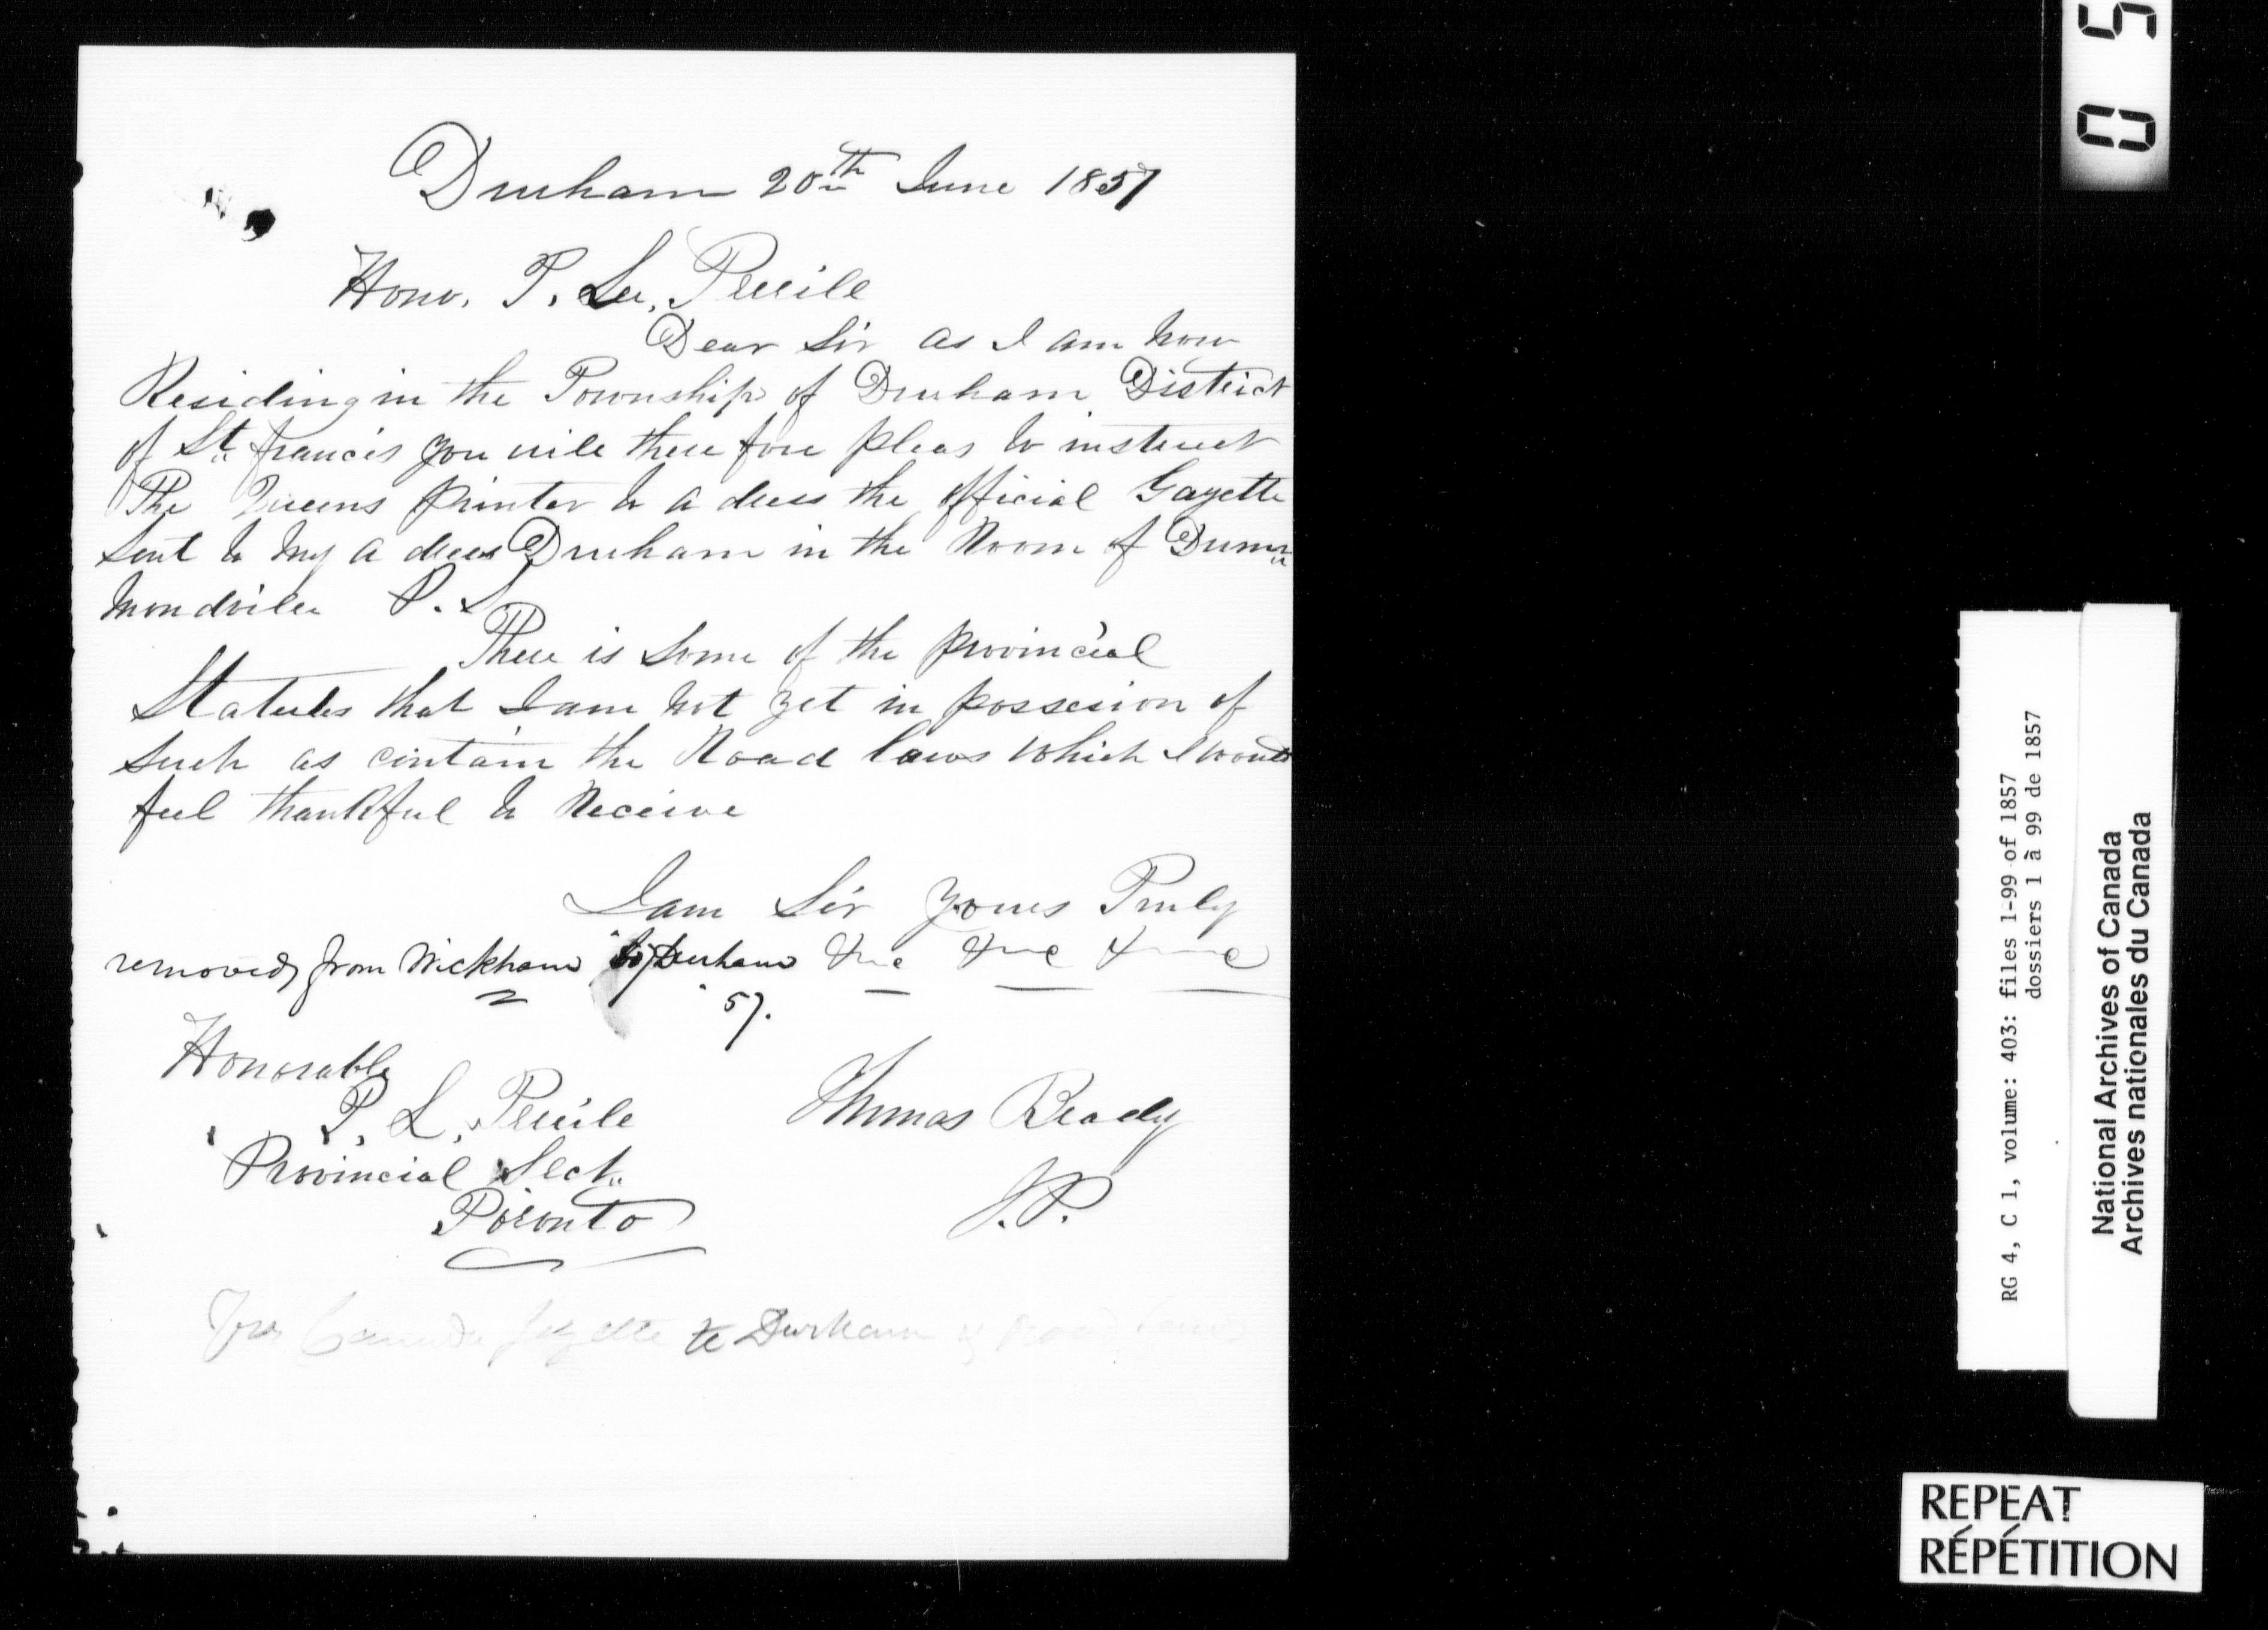 Durham 20th June 1857
Honr. T. Lee. Terrile
Dear Sir as I am now
Residing in the Township of Durham District
of St. francis you wile there fore pleas to instruct
The Queens printer to a dress the official Gazette
Sent to my a dress Durham in the Room of Drum
mondvilee P. S
There is some of the provincial
Statutes that I am not yet in possesion of
Such as contain the Road laws which I would
feel thankful to Receive
I am Sir yours Truly
removed from Wickham to Durham &c &c &c
57.
Honorable
T. L. Terrile
Provincial Sect.
Toronto
Thomas Brady
J.P.
For Canada Gazette to Durham & Road Laws
0 5
RG 4, C 1, volume: 403: files 1-99 of 1857
dossiers 1 à 99 de 1857
National Archives of Canada
Archives nationales du Canada
REPEAT
RÉPÉTITION